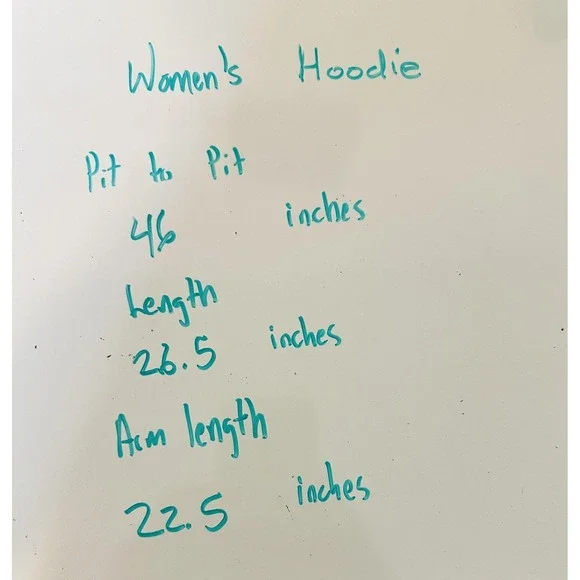 Women's Hoodie
Pit to Pit
46 inches
Length
26.5 inches
Arm length
22.5 inches